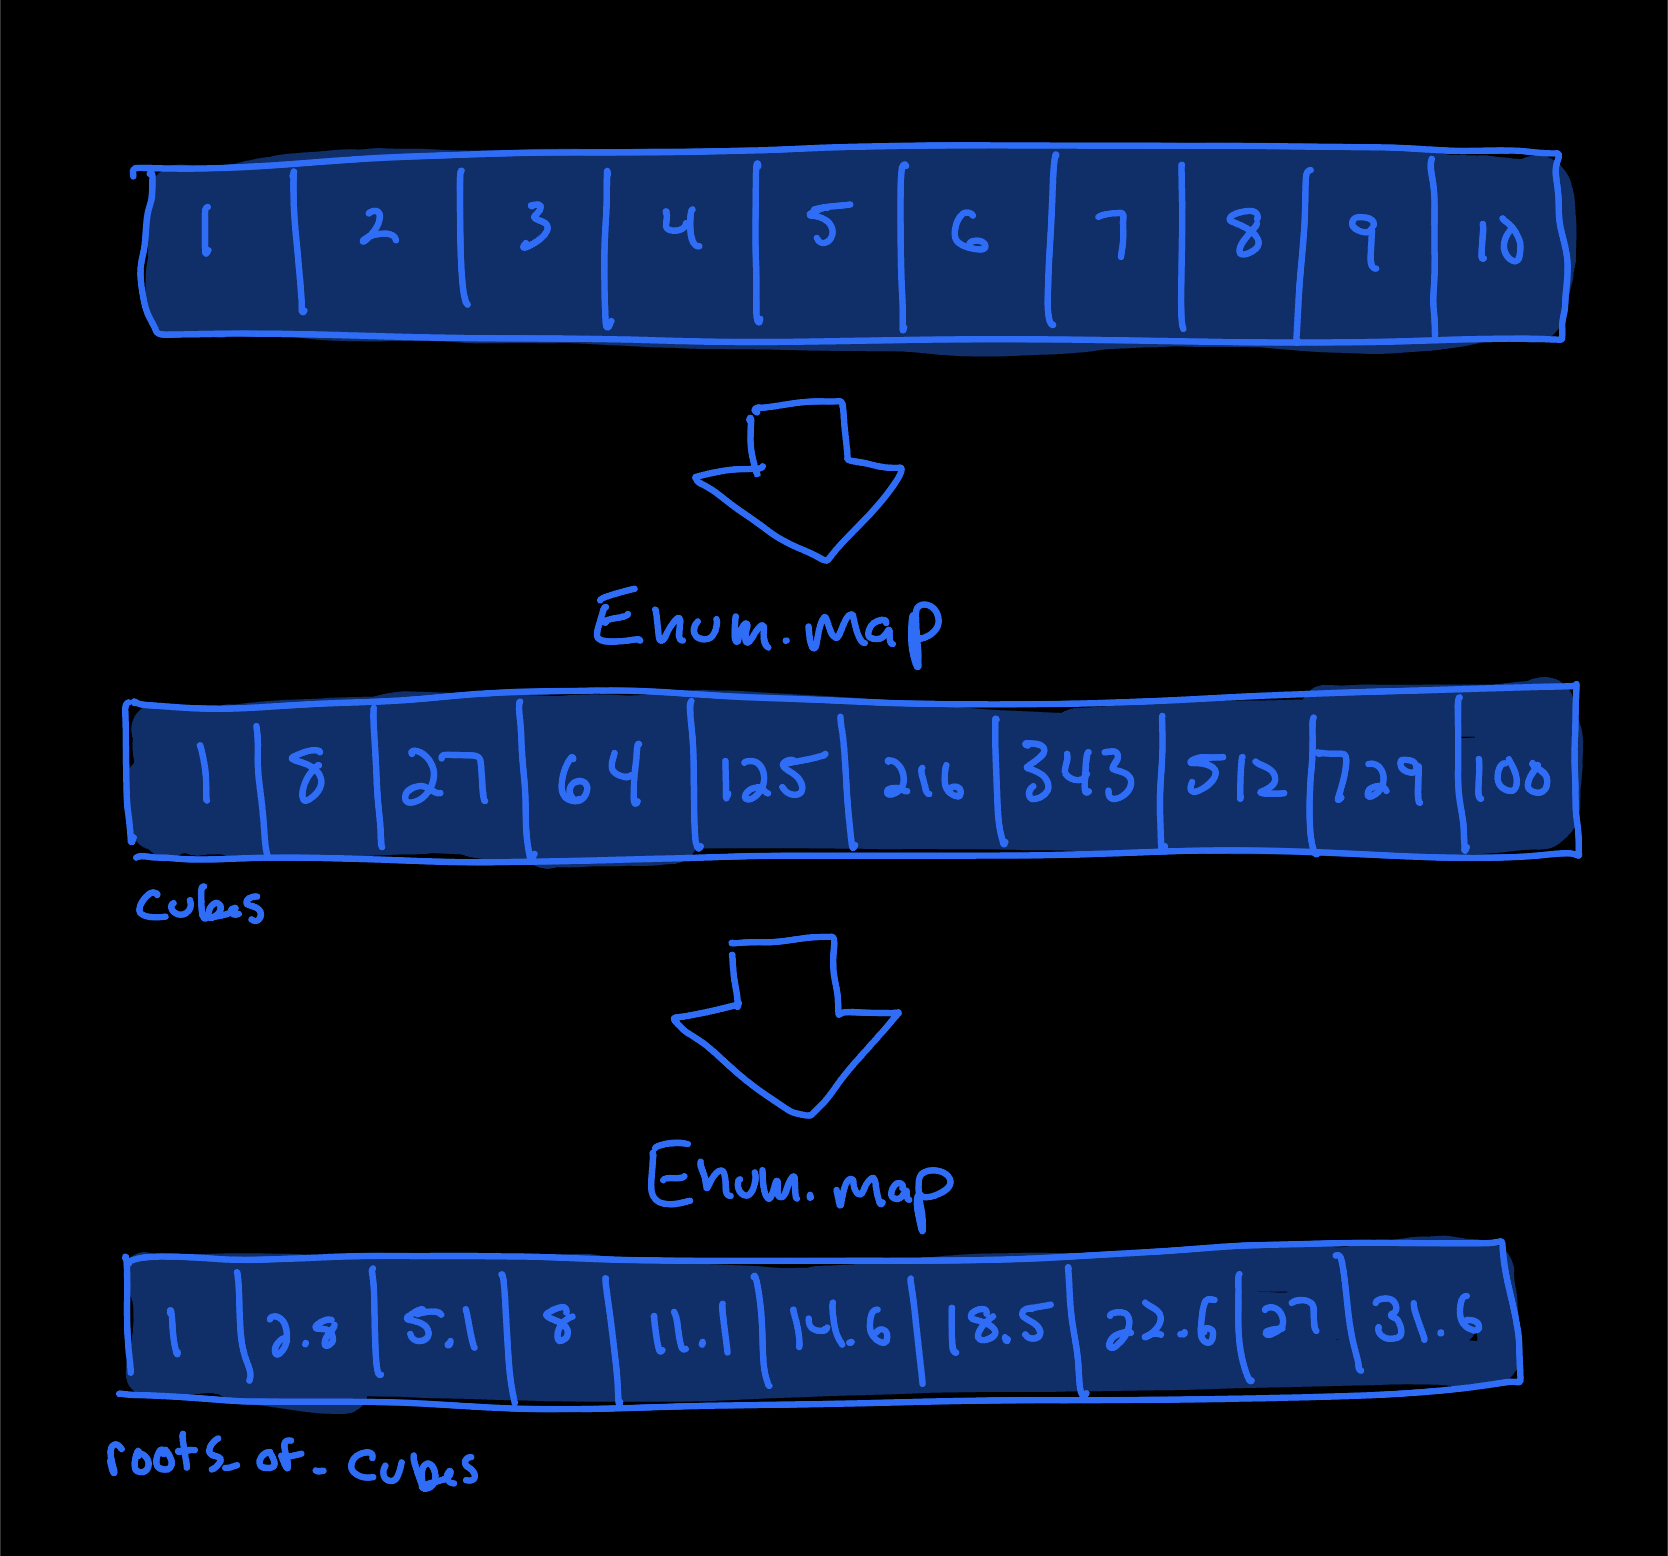 1 2 3 4 5 6 7 8 9 10
Enum.map
1 8 27 64 125 216 343 512 729 100
cubes
Enum.map
1 2.8 5.1 8 11.1 14.6 18.5 22.6 27 31.6
roots_of_cubes